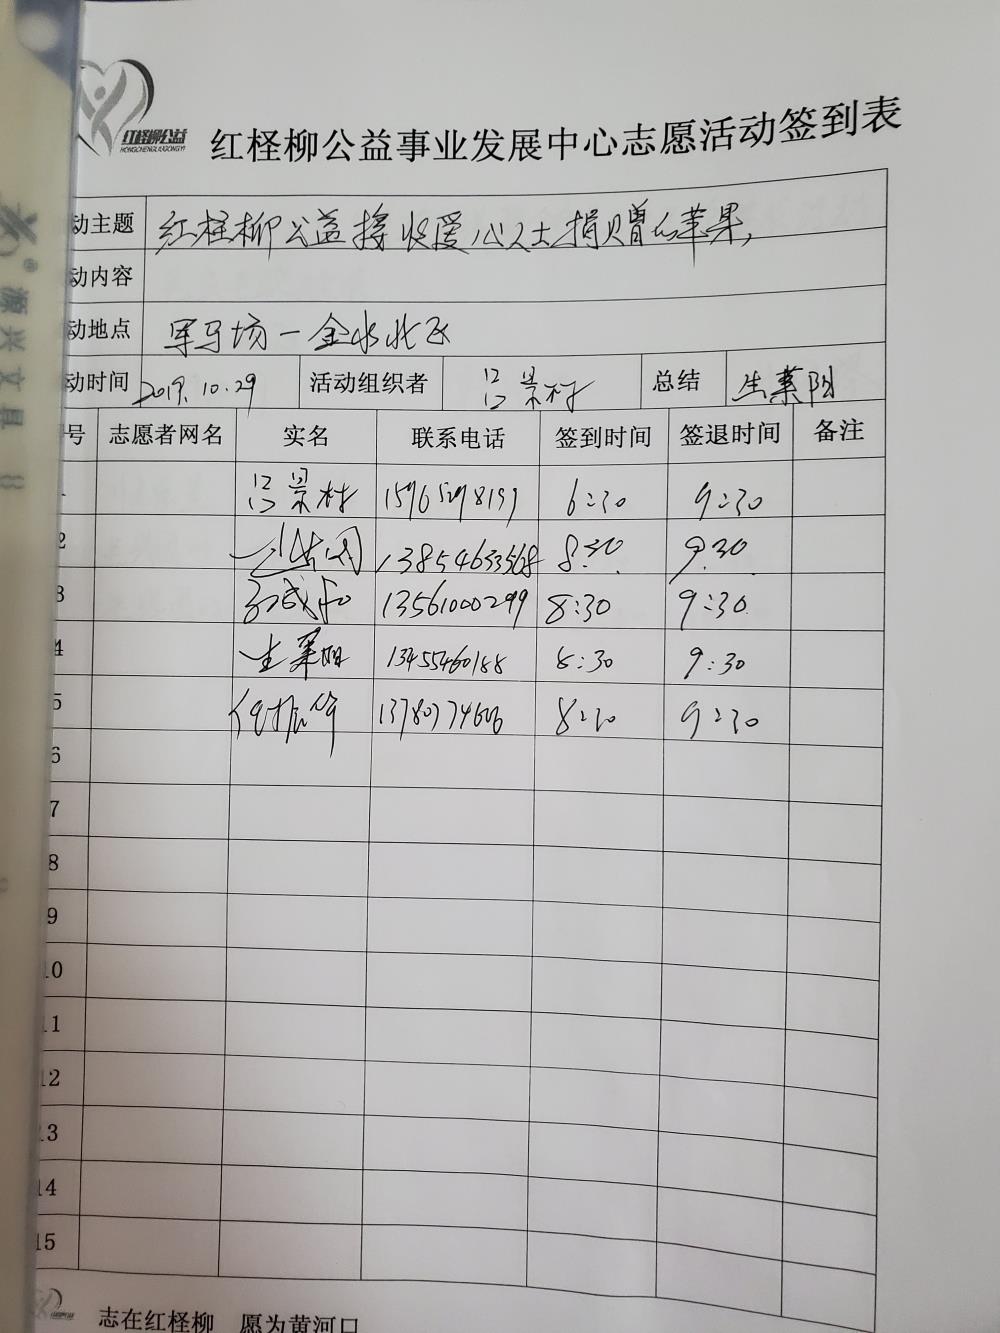 红柽柳公益
HONGCHENGLIUGONGYI
红柽柳公益事业发展中心志愿活动签到表
动主题 红柽柳公益接收爱心人士捐赠的苹果,
动内容
动地点 军马场一金水北区
动时间 2019.10.29 活动组织者 吕景村 总结 生莱阳
号 志愿者网名 实名 联系电话 签到时间 签退时间 备注
1 吕景村 15965298199 6:30 9:30
2 13854633568 8:30 9:30
3 13561000299 8:30 9:30
4 生莱阳 13455460188 8:30 9:30
5 任振华 13780774606 8:30 9:30
6
7
8
9
10
11
12
13
14
15
志在红柽柳 愿为黄河口
源兴文具